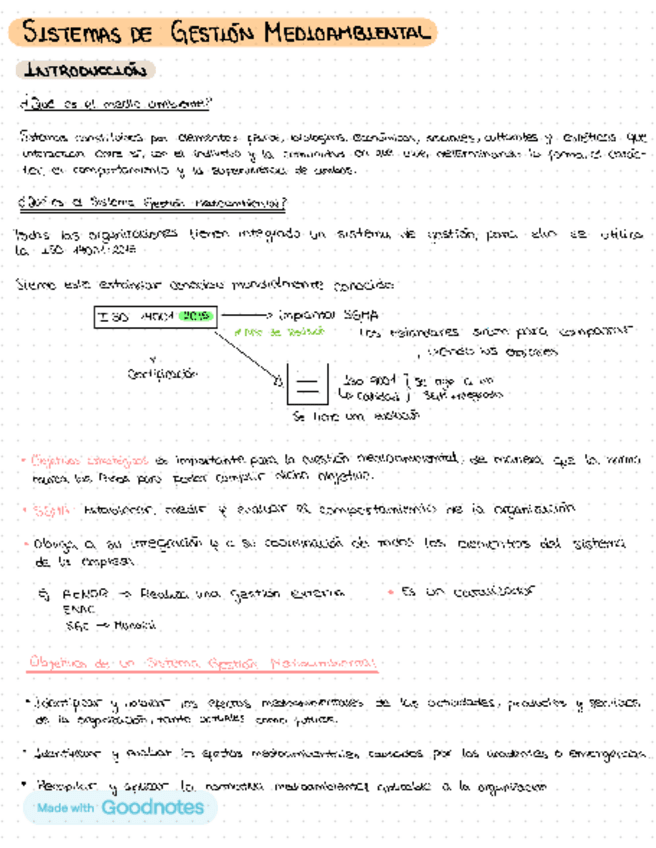 SISTEMAS DE GESTIÓN MEDIOAMBIENTAL
INTRODUCCIÓN
¿Qué es el medio ambiente?
Sistemas constituidos por elementos físicos, biológicos, económicos, sociales, culturales y estéticos que
interactúan entre sí, con el individuo y la comunidad en que vive, determinando la forma, el carác-
ter, el comportamiento y la supervivencia de ambos.
¿Qué es el Sistema Gestión Medioambiental?
Todas las organizaciones tienen integrado un sistema de gestión, para ello se utiliza
la ISO 14001:2015
Siendo este estándar mundialmente conocido
ISO 14001 2015 → implantar SGMA
los estándares sirven para comparar
Certificación
ISO 9001 { Se une a un
↳ Calidad } integrado
Se tiene una evolución
• Objetivos estratégicos es importante para la cuestión medioambiental, de manera que la norma
marca las líneas para poder cumplir dicho objetivo.
• SGMA Establecer, medir y evaluar el comportamiento de la organización
• Obliga a su integración y a su coordinación de todos los elementos del sistema
de la empresa
AENOR → Realiza una gestión externa
• Es un catalizador
ENAC
→ Mundial
Objetivos de un Sistema Gestión Medioambiental
• Identificar y valorar los efectos medioambientales de las actividades, productos y servicios
de la organización, tanto actuales como futuros.
• Identificar y evaluar los efectos medioambientales causados por los accidentes o emergencias
• Recopilar y aplicar la normativa medioambiental aplicable a la organización
Made with Goodnotes